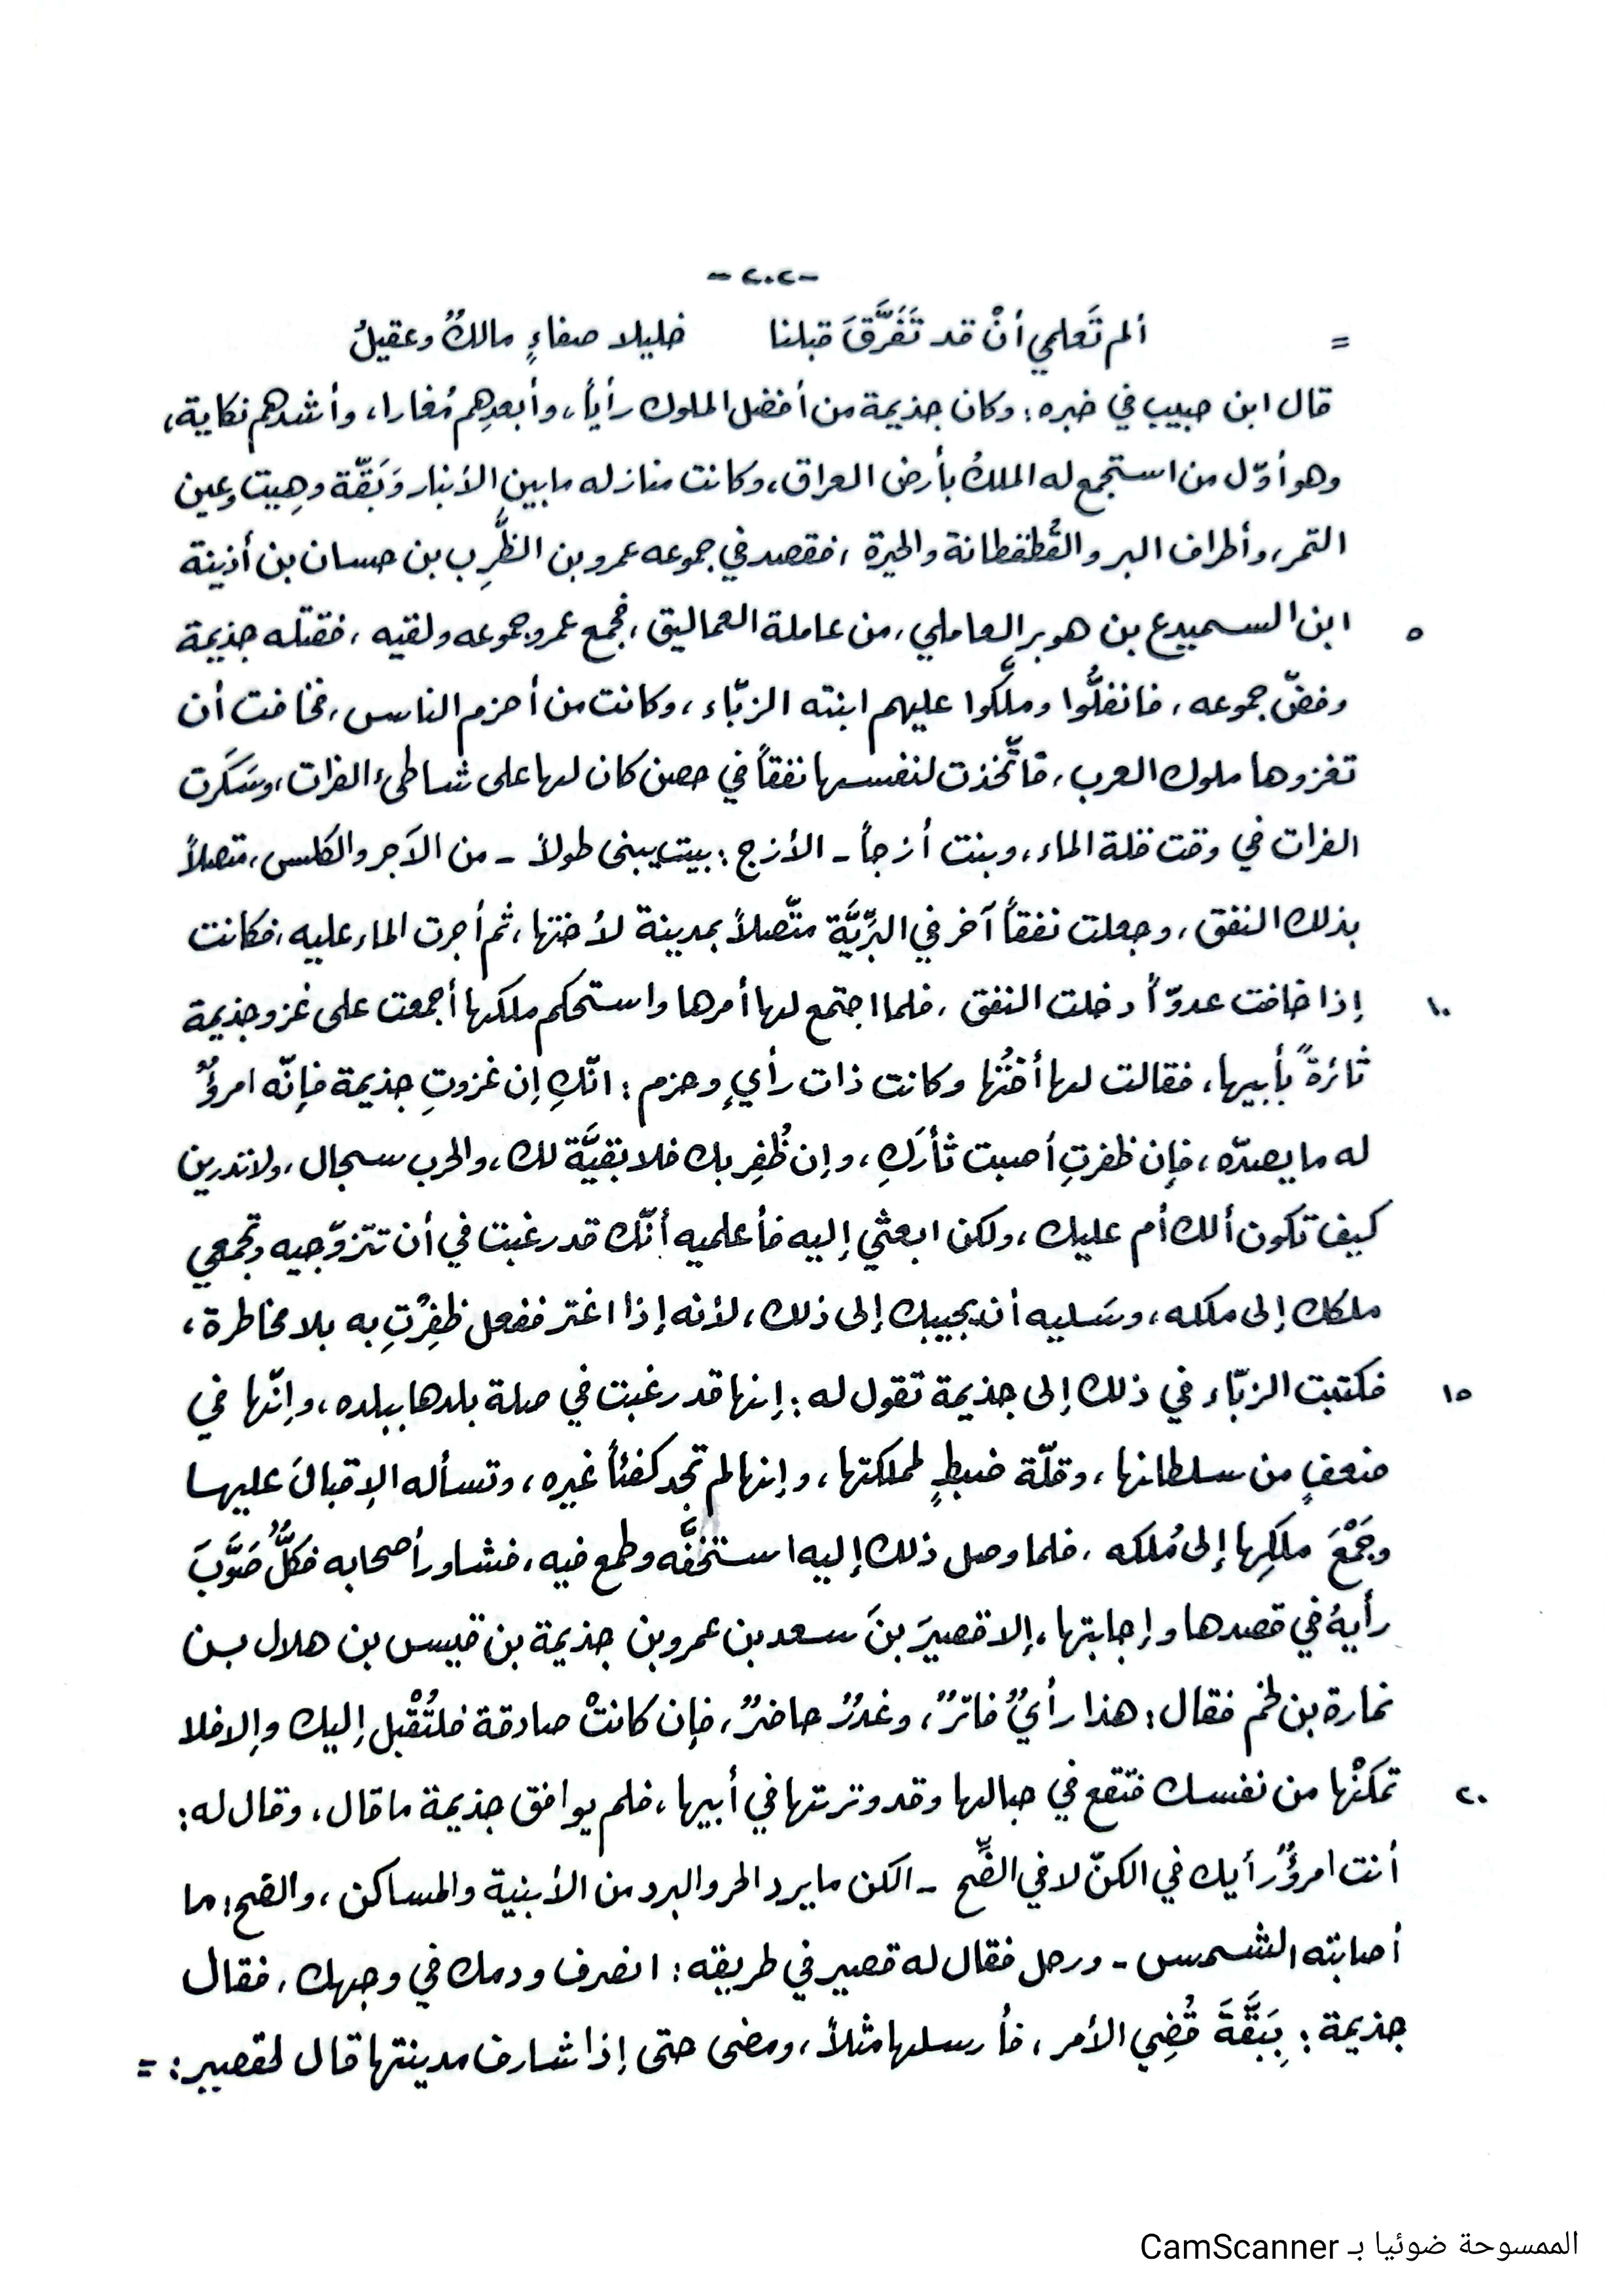 -٢٠٢-
= ألم تَعلمي أنْ قد تَفَرَّقَ قبلنا خليلا صفاءٍ مالكٌ وعقيلُ
قال ابن حبيب في خبره: وكان جذيمة من أفضل الملوك رأياً، وأبعدِهم مُغارا، وأشدهم نكاية،
وهو أوّل من استجمع له الملكُ بأرض العراق، وكانت منازله مابين الأنبار وَبَقّة وهِيت وعين
التمر، وأطراف البر والقُطقطانة والحيرة، فقصد في جموعه عمرو بن الظَّرِب بن حسان بن أذينة
٥ ابن السميدع بن هوبر العاملي، من عاملة العماليق، فجمع عمرو جموعه ولقيه، فقتله جذيمة
وفضّ جموعه، فانفلُّوا وملَّكوا عليهم ابنته الزبّاء، وكانت من أحزم الناس، فخافت أن
تغزوها ملوك العرب، فاتّخذت لنفسها نفقاً في حصن كان لها على شاطىء الفرات، وسَكَرت
الفرات في وقت قلة الماء، وبنت أزجاً - الأزج: بيت يبنى طولاً - من الآجر والكلس، متصلاً
بذلك النفق، وجعلت نفقاً آخر في البرِّيَّة متّصلاً بمدينة لأختها، ثم أجرت الماء عليه، فكانت
١٠ إذا خافت عدوّاً دخلت النفق، فلما اجتمع لها أمرها واستحكم ملكها أجمعت على غزو جذيمة
ثائرةً بأبيها، فقالت لها أختُها وكانت ذات رأيٍ وحزم: انّكِ إن غزوتِ جذيمة فإنّه امرؤٌ
له ما يصدّه، فإن ظفرتِ أصبت ثأرَكِ، وإن ظُفِر بك فلا بقيَّة لك، والحرب سجال، ولا تدرين
كيف تكون ألك أم عليك، ولكن ابعثي إليه فأعلميه أنّك قد رغبت في أن تتزوّجيه وتجمعي
ملكك إلى ملكه، وسَليه أن يجيبك إلى ذلك، لأنه إذا اغتر ففعل ظفِرْتِ به بلا مخاطرة،
١٥ فكتبت الزبّاء في ذلك إلى جذيمة تقول له: إنها قد رغبت في صلة بلدها ببلده، وإنّها في
ضعفٍ من سلطانها، وقلّة ضبطٍ لمملكتها، وإنها لم تجد كفئاً غيره، وتسأله الإقبالَ عليها
وجَمْعَ ملكِها إلى مُلكه، فلما وصل ذلك إليه استخفَّه وطمع فيه، فشاور أصحابه فكلٌّ صَوَّبَ
رأيهُ في قصدها وإجابتها، إلا قصيرَ بنَ سعد بن عمرو بن جذيمة بن قيس بن هلال بن
نمارة بن لخم فقال: هذا رأيٌ فاترٌ، وغدرٌ حاضرٌ، فإن كانتْ صادقة فلتُقْبل إليك وإلا فلا
٢٠ تمكنْها من نفسك فتقع في حبالها وقد وترتها في أبيها، فلم يوافق جذيمة ما قال، وقال له:
أنت امرؤٌ رأيك في الكنّ لا في الضِّح - الكن ما يرد الحر والبرد من الأبنية والمساكن، والضح: ما
أصابته الشمس - ورحل فقال له قصير في طريقه: انصرف ودمك في وجهك، فقال
جذيمة: بِبَقَّةَ قُضِي الأمر، فأرسلها مثلاً، ومضى حتى إذا شارف مدينتها قال لقصير: =
الممسوحة ضوئيا بـ CamScanner